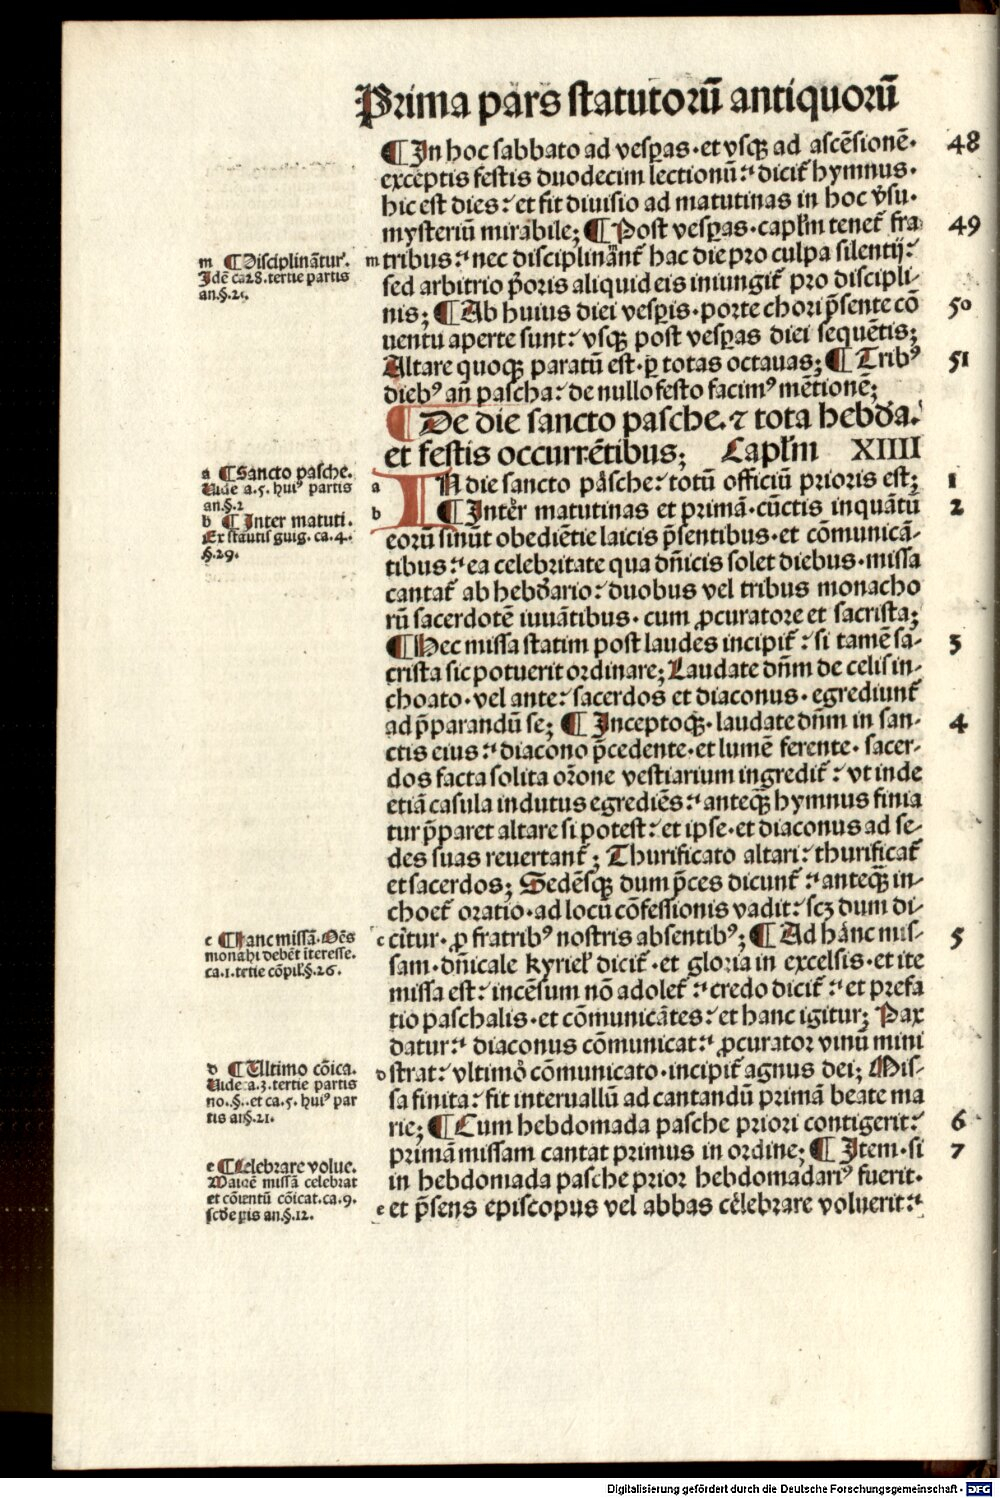 Prima pars statutorū antiquorū
¶ In hoc sabbato ad vesꝑas·et vsqꝫ ad ascēsionē· 48
exceptis festis duodecim lectionū: dicit̄ hymnus·
hic est dies: et fit diuisio ad matutinas in hoc v̾su·
mysteriū mirabile; ¶ Post vesꝑas·capl̄m tenet̄ fra 49
m tribus: nec disciplinānt̄ hac die pro culpa silentij:
sed arbitrio p̄oris aliquid eis iniungit̄ pro discipli-
nis; ¶ Ab huius diei vesꝑis·porte chori p̄sente cō 50
uentu aperte sunt: vsqꝫ post vesꝑas diei sequētis;
Altare quoqꝫ paratū est·ꝑ totas octauas; ¶ Tribꝰ 51
diebꝰ an̄ pascha: de nullo festo facimꝰ mētionē;
¶ De die sancto pasche.⁊ tota hebd̄a.
et festis occurrētibus; Capl̄m XIIII
a IN die sancto pasche: totū officiū prioris est; 1
b ¶ Inter matutinas et primā·cūctis inquātū 2
eorū sinūt obediētie laicis p̄sentibus·et cōmunicā-
tibus: ea celebritate qua dn̄icis solet diebus·missa
cantat̄ ab hebd̄ario: duobus vel tribus monacho
rū sacerdotē iuuātibus·cum ꝓcuratore et sacrista;
¶ Hec missa statim post laudes incipit̄: si tamē sa- 3
crista sic potuerit ordinare; Laudate dn̄m de celis in-
choato·vel ante: sacerdos et diaconus·egrediunt̄
ad p̄parandū se; ¶ Inceptoqꝫ·laudate dn̄m in san- 4
ctis eius: diacono p̄cedente·et lumē ferente·sacer-
dos facta solita or̄one vestiarium ingredit̄: vt inde
etiā casula indutus egrediēs: anteqꝫ̄ hymnus finia
tur p̄paret altare si potest: et ipse·et diaconus ad se-
des suas reuertant̄; Thurificato altari: thurificat̄
et sacerdos; Sedēsqꝫ dum p̄ces dicunt̄: anteqꝫ̄ in-
choet̄ oratio·ad locū cōfessionis vadit: scꝫ dum di-
c citur·ꝓ fratribꝰ nostris absentibꝰ; ¶ Ad hanc mis- 5
sam·dn̄icale kyriel̄ dicit̄·et gloria in excelsis·et ite
missa est: incēsum nō adolet̄: credo dicit̄: et prefa
tio paschalis·et cōmunicātes: et hanc igitur; Pax
datur: diaconus cōmunicat: ꝓcurator vinū mini
d strat: vltimo cōmunicato·incipit̄ agnus dei; Mis-
sa finita: fit interuallū ad cantandū primā beate ma
rie; ¶ Cum hebdomada pasche priori contigerit: 6
primā missam cantat primus in ordine; ¶ Item·si 7
in hebdomada pasche prior hebdomadariꝰ fuerit·
e et p̄sens episcopus vel abbas celebrare voluerit:
m ¶ Disciplinātur.
Idē ca 28. tertie partis
an.§.25.
a ¶ Sancto pasche.
Vide a.5. huiꝰ partis
an.§.2
b ¶ Inter matuti.
Ex statutis guig. ca.4.
§.29.
c ¶ Hanc missā. Oēs
monahi debēt īteresse.
ca.1.tertie cōpil̄.§.26.
d ¶ Ultimo cōica.
Vide a.3. tertie partis
no.§..et ca.5. huiꝰ par
tis an§.21.
e ¶ Celebrare volue.
missā celebrat
et cōuentū cōicat.ca.9.
scd̄e ꝑtis an.§.12.
Digitalisierung gefördert durch die Deutsche Forschungsgemeinschaft · DFG